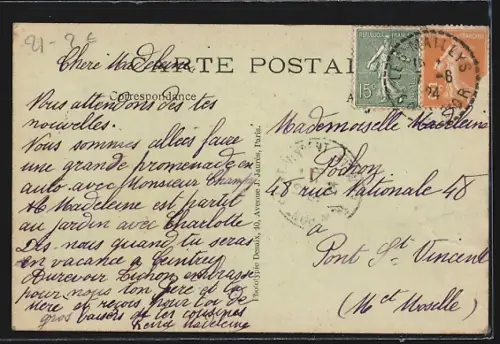 21-2f
Chère Madeleine
CARTE POSTALE
Correspondance
Vous attendons de tes
nouvelles.
Nous sommes allées faire
une grande promenade en
auto avec Monsieur
Madeleine est partit
au jardin avec Charlotte
Dis nous quand tu seras
en vacance à
Aurevoir embrasse
pour nous ton père et ta
mère et reçois pour toi de
gros baisers de tes cousines
Madeleine
Phototypie Demaux, 40, Avenue J. Jaurès, Paris.
REPUBLIQUE FRANÇAISE
15c
LES MAILLYS
24
Mademoiselle Madeleine
48 rue Nationale 48
à
Pont St Vincent
(Mthe et Moselle)